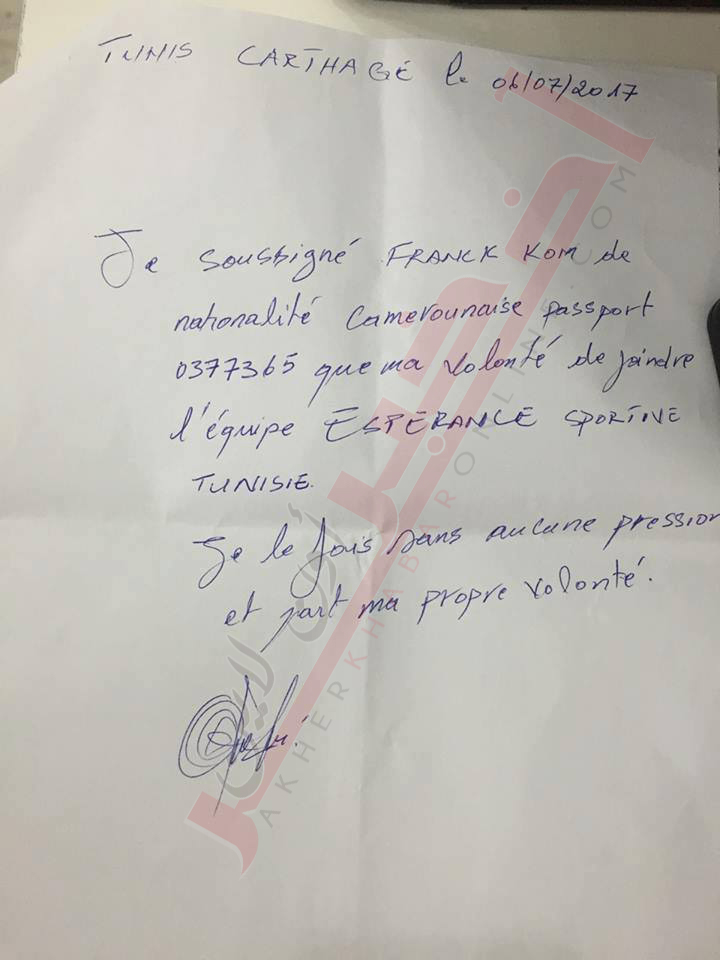 TUNIS CARTHAGE le 06/07/2017
Je soussigné FRANCK KOM de
nationalité Camerounaise passport
0377365 que ma volonté de joindre
l'équipe ESPÉRANCE SPORTIVE
TUNISIE.
Je le fais sans aucune pression
et part ma propre volonté.
آخر خبر أون لاين
AKHERKHABARONLINE.COM